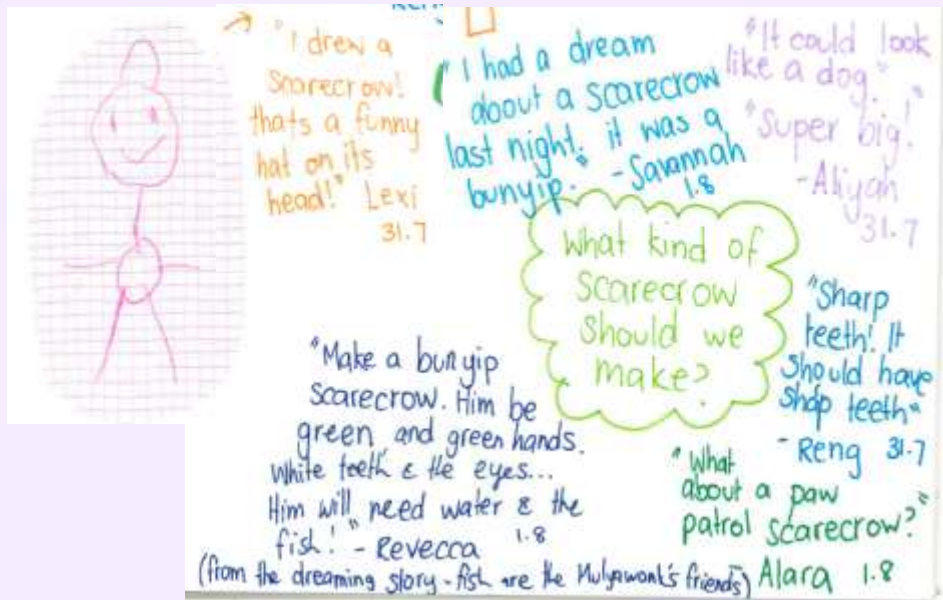 "I drew a
scarecrow!
thats a funny
hat on its
head!" Lexi
31.7
"I had a dream
about a scarecrow
last night. it was a
bunyip." - Savannah
1.8
"It could look
like a dog."
"Super big!"
- Aliyah
31.7
What kind of
scarecrow
should we
make?
"Sharp
teeth! It
should have
shap teeth"
- Reng 31.7
"Make a bunyip
scarecrow. Him be
green and green hands.
White teeth & the eyes...
Him will need water & the
fish!" - Revecca 1.8
(from the dreaming story - fish are the Mulyawonk's friends)
"What
about a paw
patrol scarecrow?"
Alara 1.8